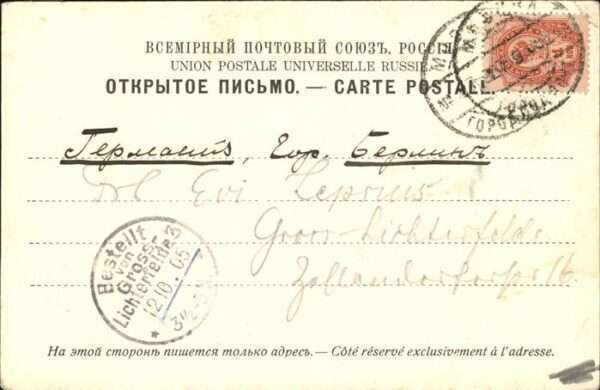 ВСЕМІРНЫЙ ПОЧТОВЫЙ СОЮЗЪ, РОССІЯ
UNION POSTALE UNIVERSELLE RUSSIE
ОТКРЫТОЕ ПИСЬМО. — CARTE POSTALE.
МОСКВА
ГОРОД
Германія, Гор. Берлинъ
Evi Lepsius
Gross-Lichterfelde
16
Bestellt
von
Gross-
Lichterfelde 3
12.10.05
На этой сторонѣ пишется только адресъ. — Côté réservé exclusivement à l'adresse.